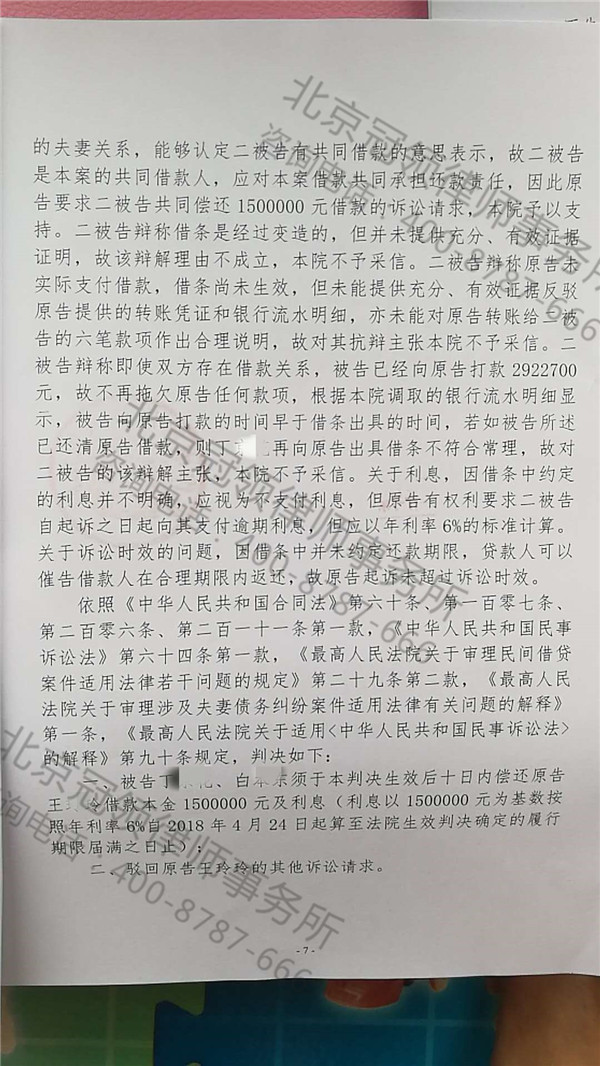 的夫妻关系，能够认定二被告有共同借款的意思表示，故二被告
是本案的共同借款人，应对本案借款共同承担还款责任，因此原
告要求二被告共同偿还 1500000 元借款的诉讼请求，本院予以支
持。二被告辩称借条是经过变造的，但并未提供充分、有效证据
证明，故该辩解理由不成立，本院不予采信。二被告辩称原告未
实际支付借款，借条尚未生效，但未能提供充分、有效证据反驳
原告提供的转账凭证和银行流水明细，亦未能对原告转账给二被
告的六笔款项作出合理说明，故对其抗辩主张本院不予采信。二
被告辩称即使双方存在借款关系，被告已经向原告打款 2922700
元，故不再拖欠原告任何款项，根据本院调取的银行流水明细显
示，被告向原告打款的时间早于借条出具的时间，若如被告所述
已还清原告借款，则丁再向原告出具借条不符合常理，故对
二被告的该辩解主张，本院不予采信。关于利息，因借条中约定
的利息并不明确，应视为不支付利息，但原告有权利要求二被告
自起诉之日起向其支付逾期利息，但应以年利率 6%的标准计算。
关于诉讼时效的问题，因借条中并未约定还款期限，贷款人可以
催告借款人在合理期限内返还，故原告起诉未超过诉讼时效。
依照《中华人民共和国合同法》第六十条、第一百零七条、
第二百零六条、第二百一十一条第一款，《中华人民共和国民事
诉讼法》第六十四条第一款，《最高人民法院关于审理民间借贷
案件适用法律若干问题的规定》第二十九条第二款，《最高人民
法院关于审理涉及夫妻债务纠纷案件适用法律有关问题的解释》
第一条，《最高人民法院关于适用<中华人民共和国民事诉讼法>
的解释》第九十条规定，判决如下：
一、被告丁、白须于本判决生效后十日内偿还原告
王借款本金 1500000 元及利息（利息以 1500000 元为基数按
照年利率 6%自 2018 年 4 月 24 日起算至法院生效判决确定的履行
期限届满之日止）；
二、驳回原告王玲玲的其他诉讼请求。
-7-
北京冠领律师事务所
咨询电话：400-8787-666
北京冠领律师事务所
咨询电话：400-8787-666
北京冠领律师事务所
询电话：400-8787-666